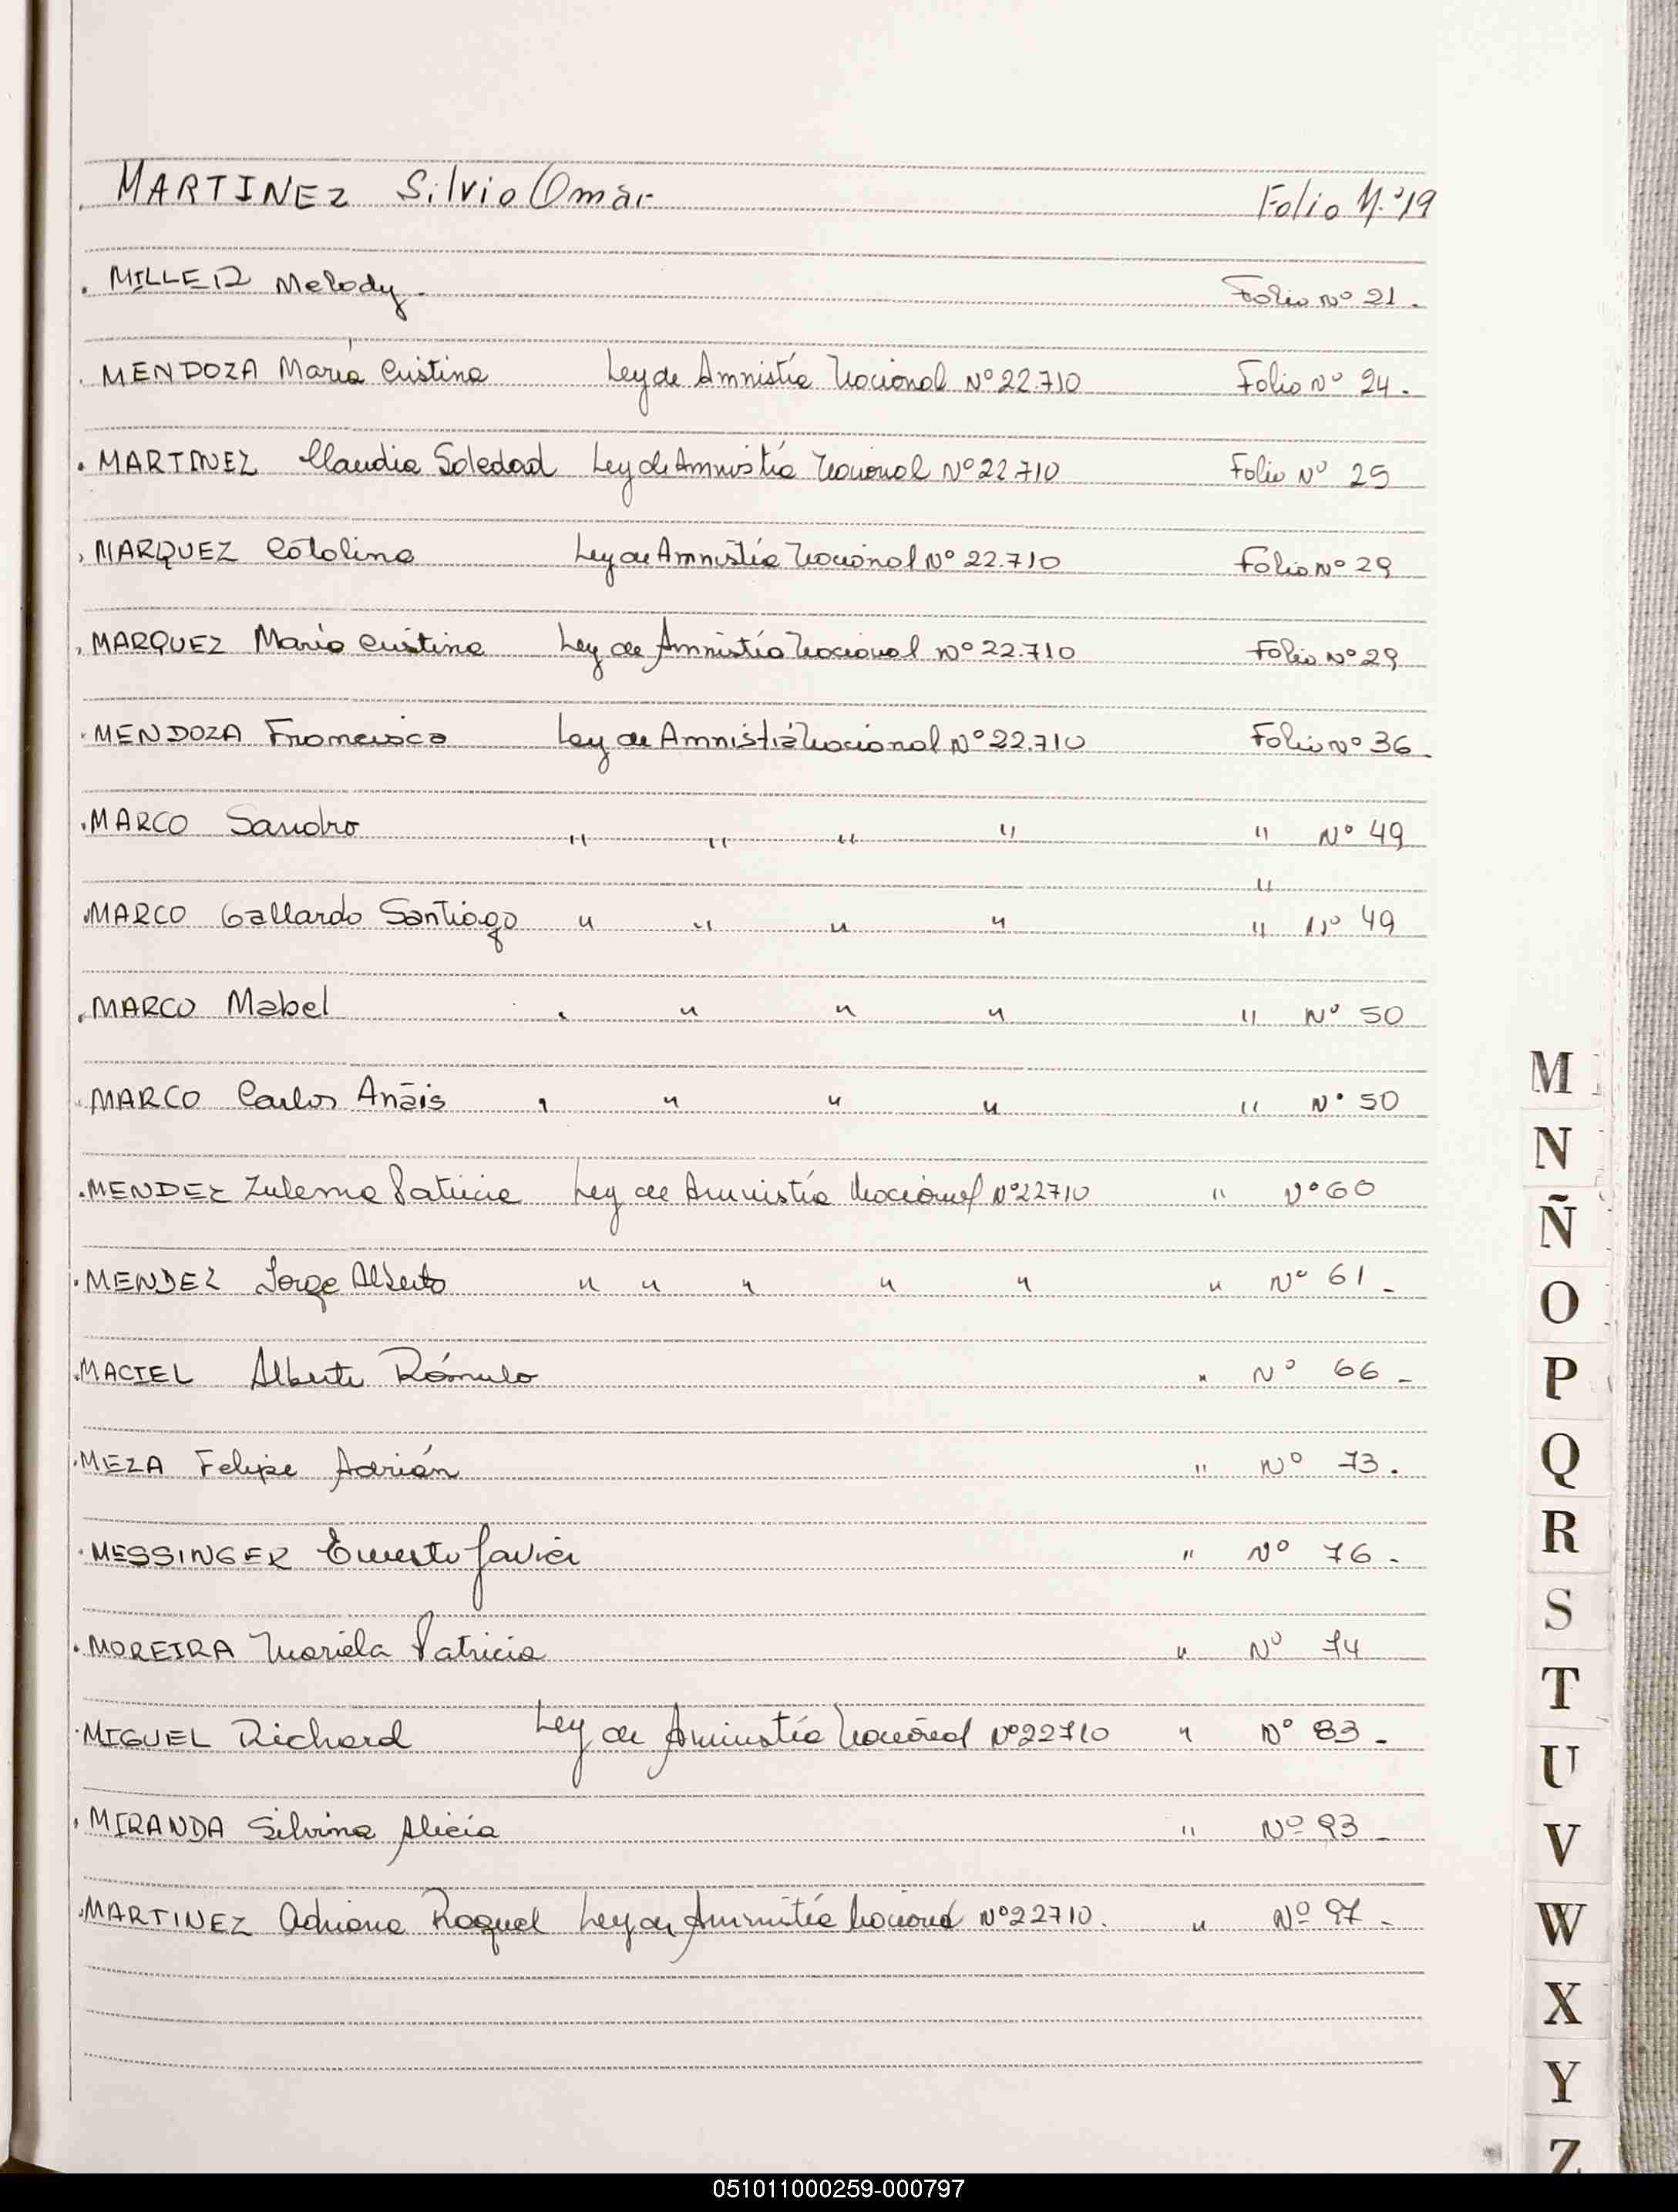 MARTINEZ Silvio Omar Folio N.º 19
. MILLER Melody. Folio Nº 21.
. MENDOZA María Cristina Ley de Amnistía Nacional Nº 22.710 Folio Nº 24.
. MARTINEZ Claudia Soledad Ley de Amnistía Nacional Nº 22.710 Folio Nº 25
. MARQUEZ Catalina Ley de Amnistía Nacional Nº 22.710 Folio Nº 29
. MARQUEZ María Cristina Ley de Amnistía Nacional Nº 22.710 Folio Nº 29
. MENDOZA Francisca Ley de Amnistía Nacional Nº 22.710 Folio Nº 36
. MARCO Sandro " " " " " Nº 49
"
. MARCO Gallardo Santiago " " " " " Nº 49
. MARCO Mabel " " " " " Nº 50
. MARCO Carlos Anäis " " " " " Nº 50
. MENDEZ Zulema Patricia Ley de Amnistía Nacional Nº 22710 " Nº 60
. MENDEZ Jorge Alberto " " " " " " Nº 61.-
. MACIEL Alberto Rómulo " Nº 66-
. MEZA Felipe Adrián " Nº 73.
. MESSINGER Ernesto Javier " Nº 76-
. MOREIRA Mariela Patricia " Nº 74
. MIGUEL Richard Ley de Amnistía Nacional Nº 22710 " Nº 83-
. MIRANDA Silvina Alicia " Nº 93-
. MARTINEZ Adriana Raquel Ley de Amnistía Nacional Nº 22710. " Nº 97-
M
N
Ñ
O
P
Q
R
S
T
U
V
W
X
Y
Z
051011000259-000797